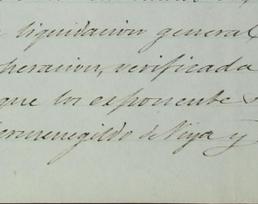 liquidacion general
peracion, verificada
que los esponente
ermenegildo de Niya y